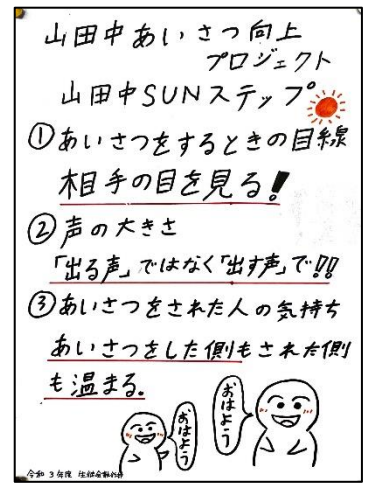 山田中あいさつ向上
プロジェクト
山田中SUNステップ
①あいさつをするときの目線
相手の目を見る!
②声の大きさ
「出る声」ではなく「出す声」で!!
③あいさつをされた人の気持ち
あいさつをした側もされた側
も温まる。
おはよう
おはよう
令和3年度